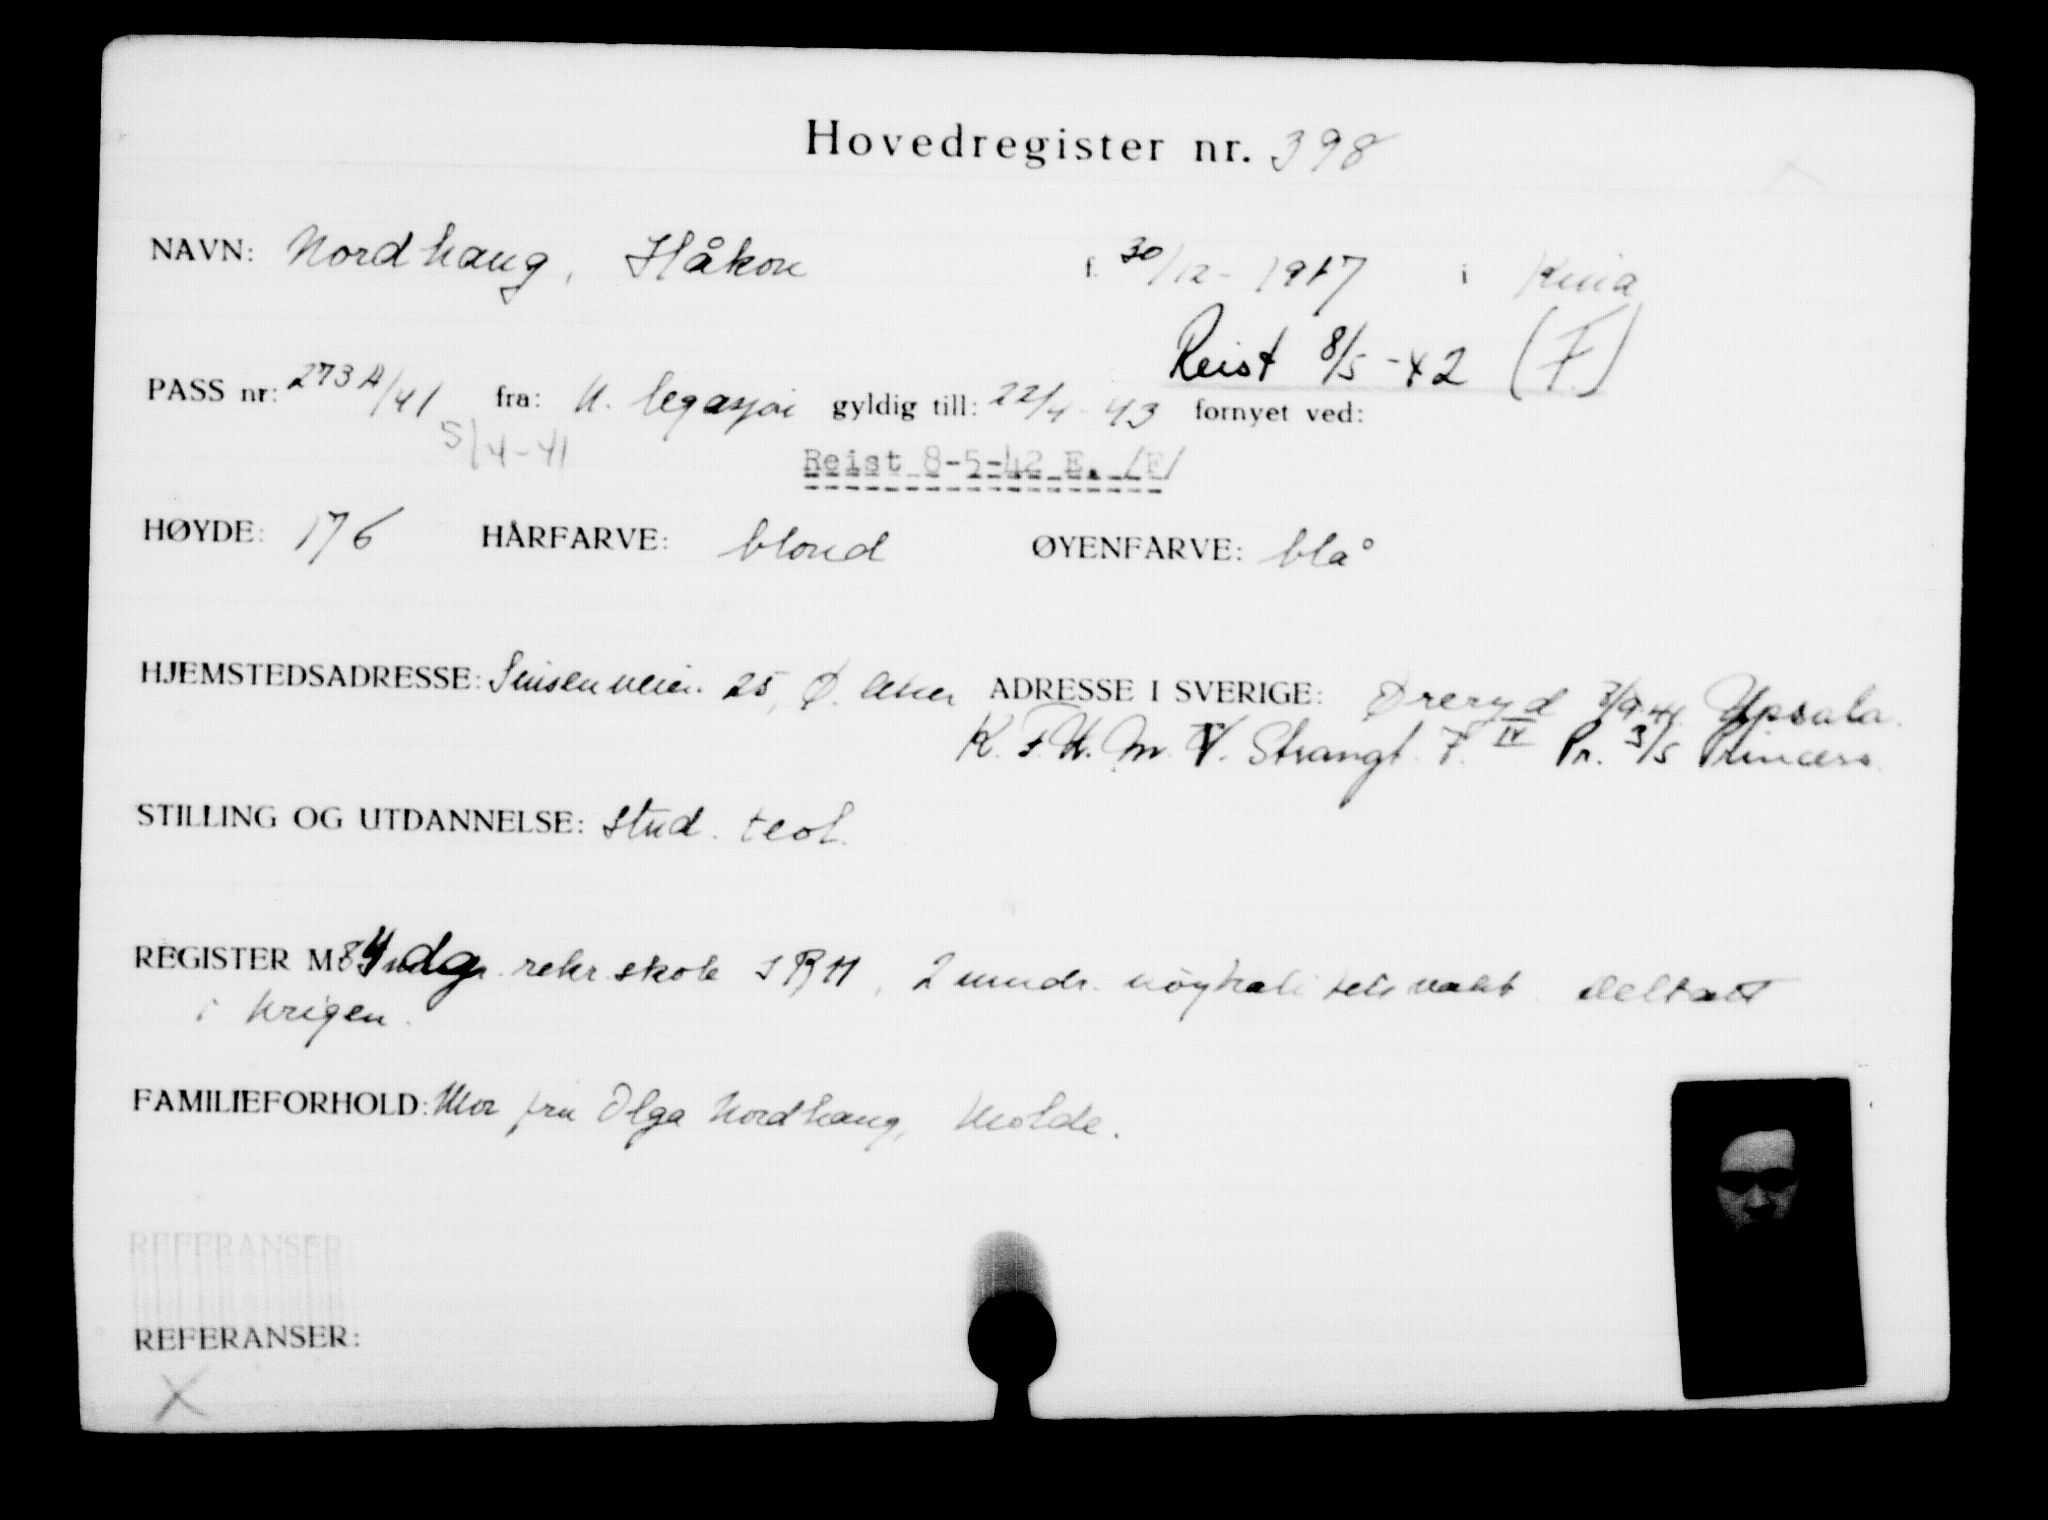 Hovedregister nr. 398
NAVN: Nordhaug, Håkon f. 30/12-1917 i Kina
Reist 8/5-42 (F)
PASS nr: 273A/41 fra: N. legasjon gyldig till: 22/4-43 fornyet ved:
5/4-41
Reist 8-5-42 E. /F/
HØYDE: 176 HÅRFARVE: blond ØYENFARVE: blå
HJEMSTEDSADRESSE: Sinsenveien 25, Ø. Aker ADRESSE I SVERIGE: Øreryd 3/9-41 Upsala.
K.F.U.M. V. Strangt. 7. IV Pr. 3/5 Princess
STILLING OG UTDANNELSE: stud. teol.
REGISTER M: 84 dg. rekr.skole IR 11, 2 mndr. nøytralitetsvakt. Deltatt
i krigen.
FAMILIEFORHOLD: Mor fru Olga Nordhaug, Molde.
REFERANSER
REFERANSER:
X